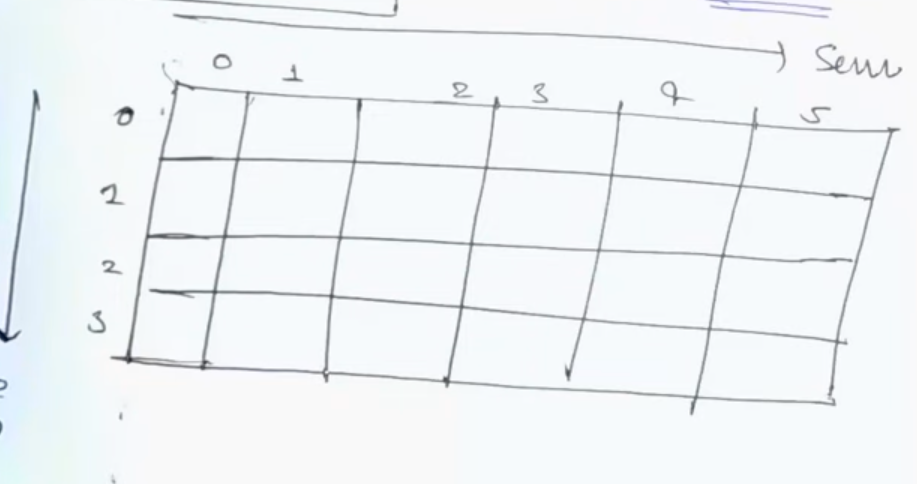 Sum
0 1 2 3 4 5
0
1
2
3